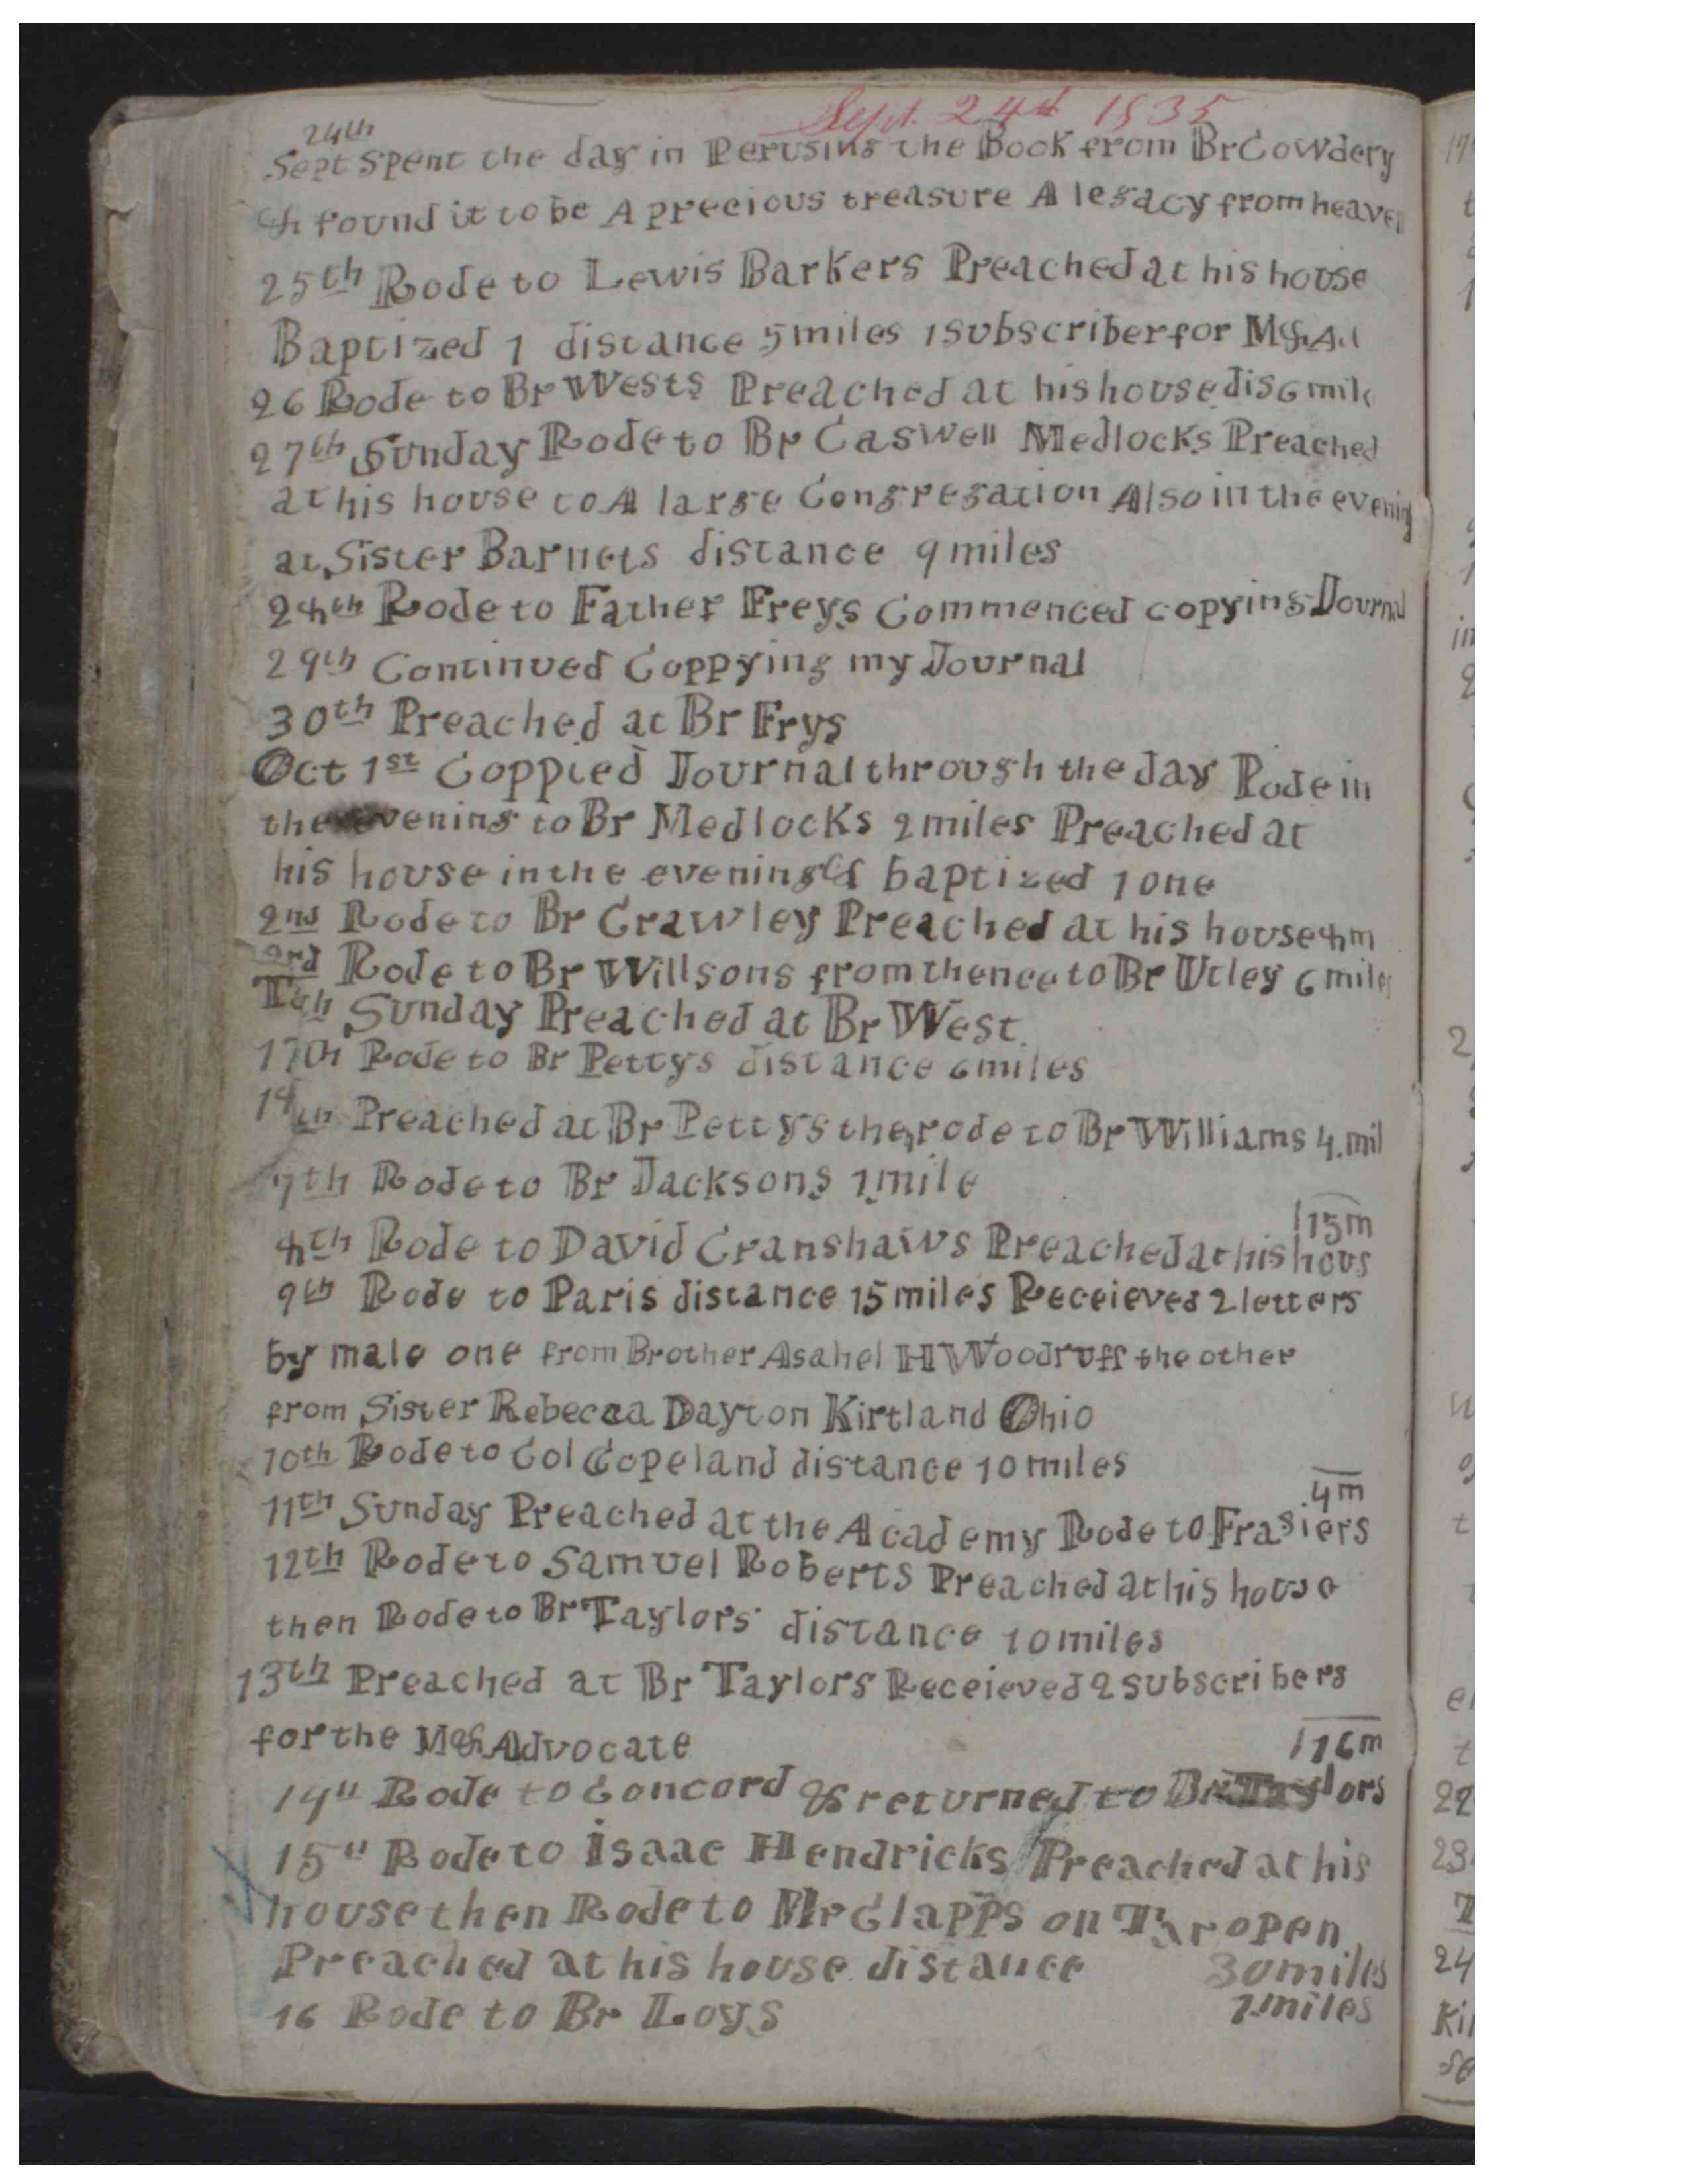 Sept. 24th 1835
24th
Sept Spent the day in Perusing the Book from Br Cowdery
& found it to be A precious treasure A legacy from heaven
25th Rode to Lewis Barkers Preached at his house
Baptized 1 distance 5 miles 1 subscriber for M&Ad
26 Rode to Br Wests Preached at his house dis 6 mile
27th Sunday Rode to Br Caswell Medlocks Preached
at his house to A large Congregation Also in the evening
at Sister Barnets distance 9 miles
28th Rode to Father Freys Commenced copying Journal
29th Continued Coppying my Journal
30th Preached at Br Frys
Oct 1st Coppied Journal through the day Rode in
the evening to Br Medlocks 2 miles Preached at
his house in the evening & baptized 1 one
2nd Rode to Br Crawley Preached at his house 8 m
3rd Rode to Br Willsons from thence to Br Utley 6 miles
Sunday Preached at Br West
Rode to Br Pettys distance 6 miles
Preached at Br Pettys then rode to Br Williams 4. mil
7th Rode to Br Jacksons 1 mile
15m
8th Rode to David Cranshaws Preached at his hous
9th Rode to Paris distance 15 miles Receieved 2 letters
by male one from Brother Asahel H Woodruff the other
from Sister Rebecca Dayton Kirtland Ohio
10th Rode to Col Copeland distance 10 miles
4m
11th Sunday Preached at the Academy Rode to Frasiers
12th Rode to Samuel Roberts Preached at his house
then Rode to Br Taylors distance 10 miles
13th Preached at Br Taylors Receieved 2 subscribers
for the M& Advocate
16m
14" Rode to Concord & returned to Br Taylors
15" Rode to Isaac Hendricks Preached at his
house then Rode to Mr Clapps on
Preached at his house distance 30 miles
16 Rode to Br Loys 7 miles